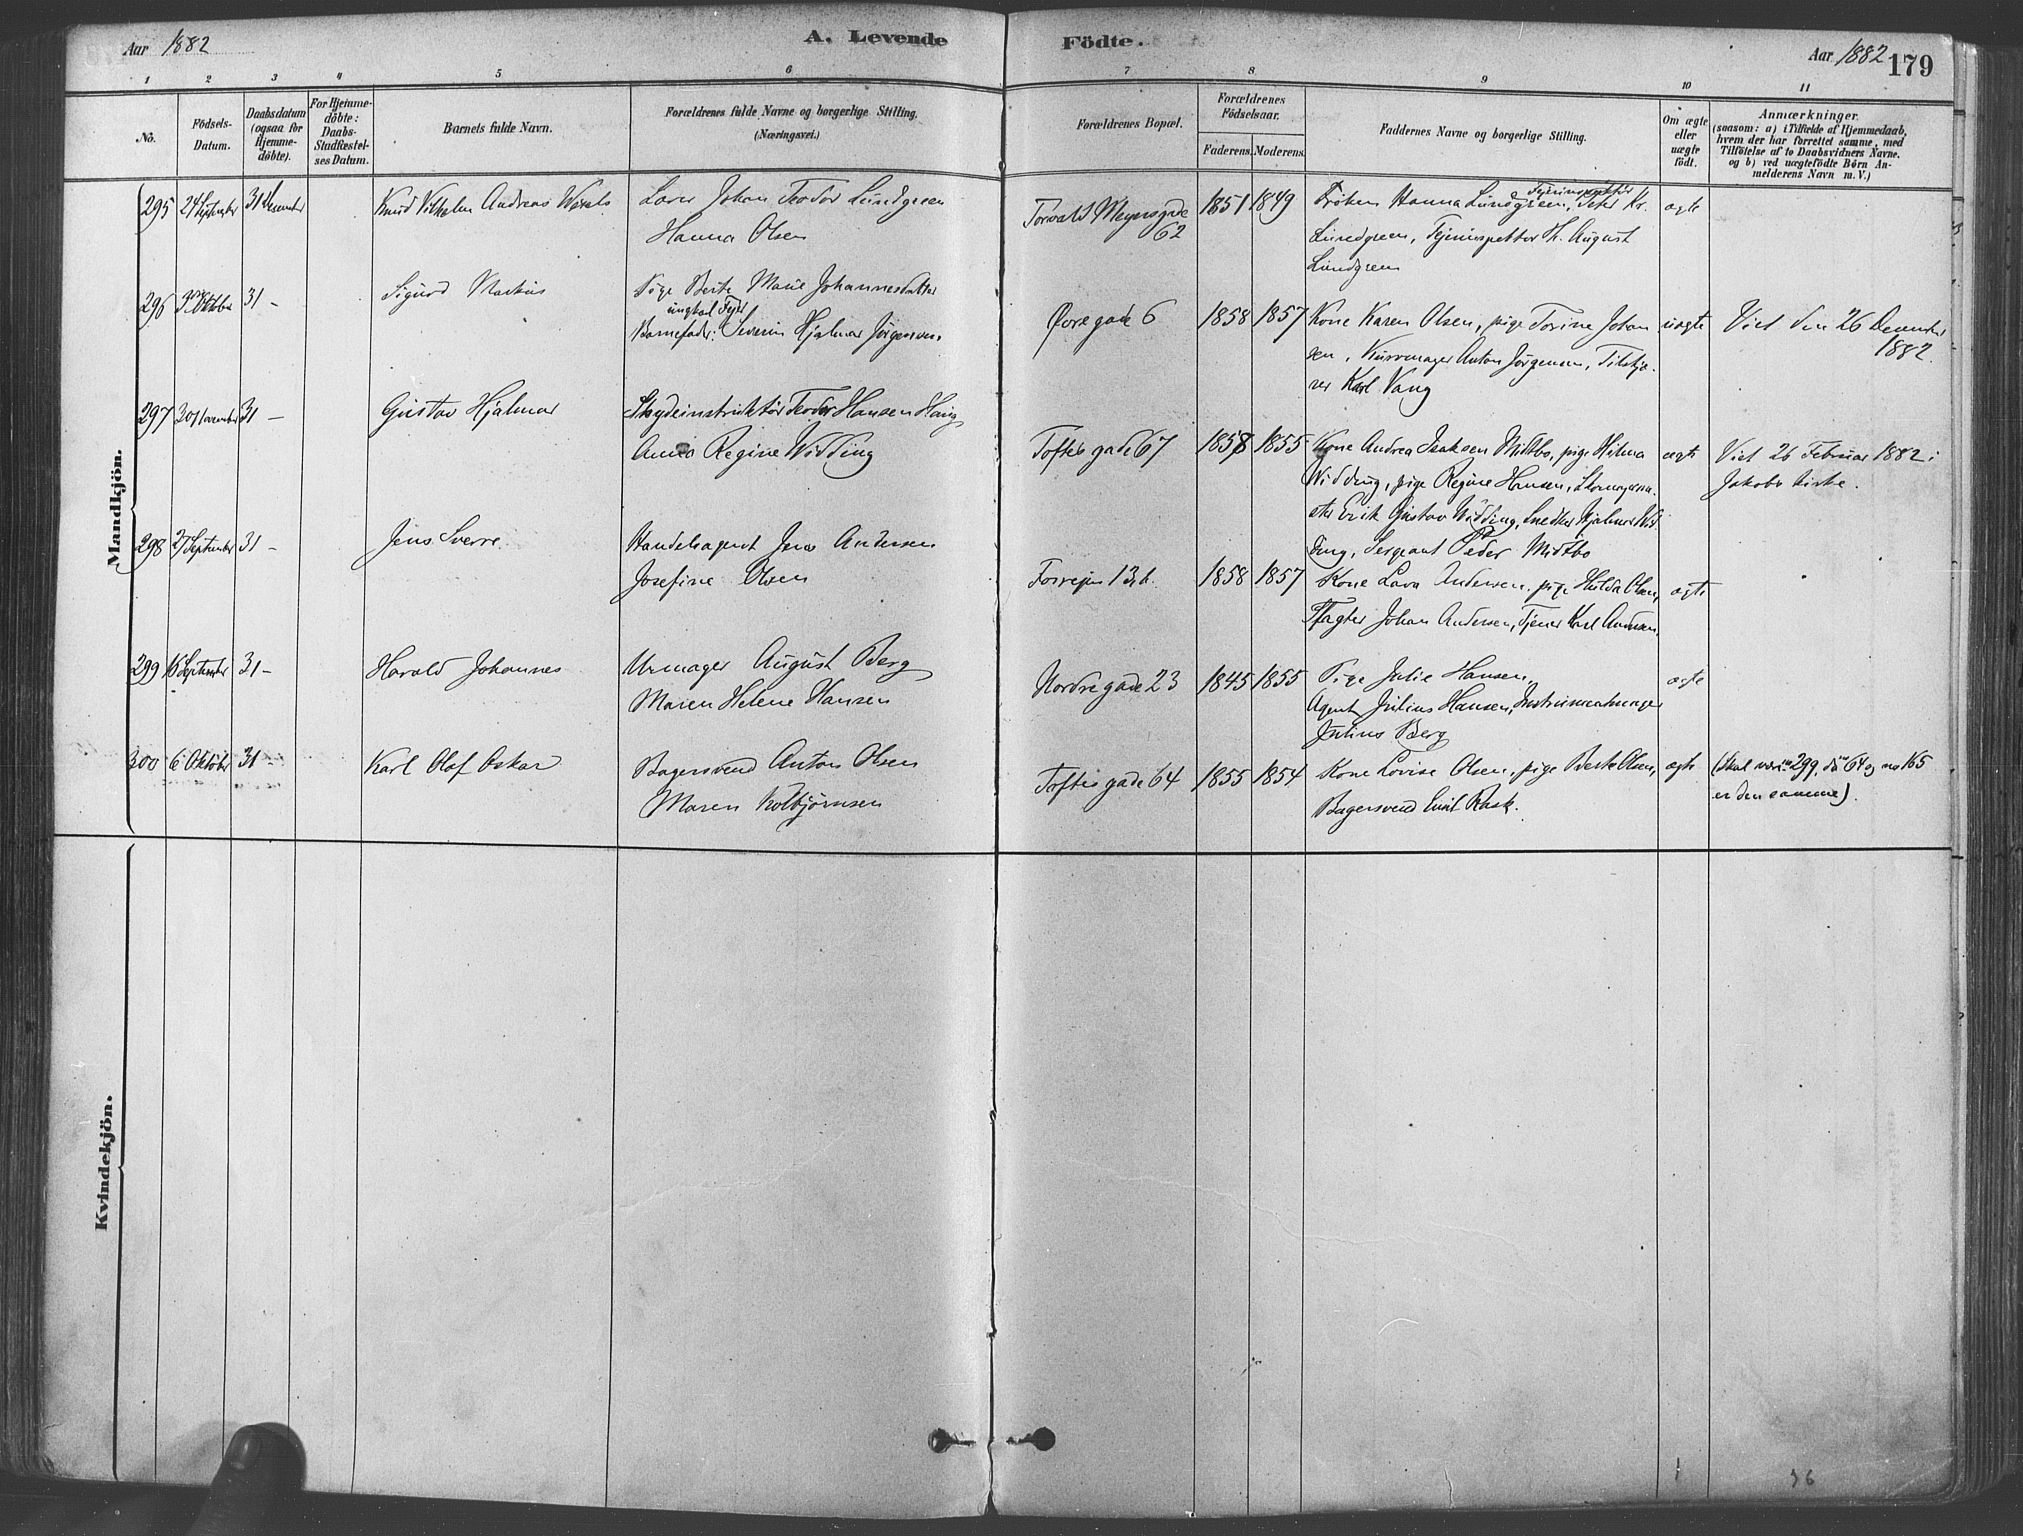 Aar 1882
A. Levende
Födte.
Aar 1882
179
1 2 3 4 5 6 7 8 9 10 11
No.
Födsels-
Datum.
Daabsdatum
(ogsaa for
Hjemme-
döbte).
For Hjemme-
döbte:
Daabs-
Stadfæstel-
ses Datum.
Barnets fulde Navn.
Forældrenes fulde Navne og borgerlige Stilling.
(Næringsvei.)
Forældrenes Bopæl.
Forældrenes
Födselsaar.
Faderens. Moderens.
Faddernes Navne og borgerlige Stilling.
Om ægte
eller
uægte
födt.
Anmærkninger.
(saasom: a) i Tilfælde af Hjemmedaab,
hvem der har forrettet samme, med
Tilföielse af to Daabsvidners Navne.
og b) ved uægtefödte Börn An-
melderens Navn m. V.)
Mandkjön.
295 24 September 31 Desember Knud Vilhelm Andreas
Johan Teodor Lundgreen
Hanna Olsen
Torvald Meyersgade
62
1851 1849
Fröken Hanna Lundgreen, Peter Kr.
Lundgreen, August
Lundgreen
ægte
296 Oktober 31 - Sigurd Markus
Pige Berte Marie Johannesdatter
ungkarl
Barnefader: Severin Hjalmar Jørgensen.
gade 6
1858 1857
Kone Karen Olsen, pige Torine Johan
sen, Anton Jørgensen,
Karl Vang
uægte
Viet den 26 December
1882.
297 November 31 - Gustav Hjalmar
Skydeinstruktør Teodor Hansen
Anna Regine Widding
Toftesgade 67
1858 1855
Kone Andrea Isaksen Midtbo, pige Hilma
Widding, pige Regine Hansen, Skomagerme-
ster Erik Gustav Widding, Snedker Hjalmar Wid
ding, Sergeant Peder Midtbo
ægte
Viet 26 Februar 1882 i
Jakobs Kirke.
298 27 September 31 - Jens Sverre
Handelsagent Jens Andersen
Josefine Olsen
13 b.
1858 1857
Kone Lava Andersen, pige Hulda Olsen,
Johan Andersen, Tjener Karl Andersen.
ægte
299 16 September 31 - Harald Johannes
Urmager August Berg
Maren Helene Hansen
Nordregade 23
1845 1855
Pige Julie Hansen,
Agent Julius Hansen, Instrumentmager
Julius Berg
ægte
300 6 Oktober 31 - Karl Olaf Oskar
Bagersvend Anton Olsen
Maren Kolbjørnsen
Toftesgade 64
1855 1854
Kone Lovise Olsen, pige Berte Olsen,
Bagersvend Emil Rask.
ægte
(Skal være 299, da no 64 og no 165
er den samme).
Kvindekjön.